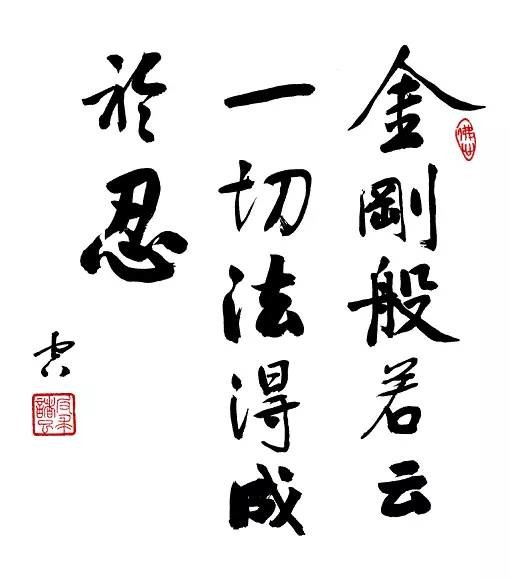 金剛般若云
一切法得成
於忍